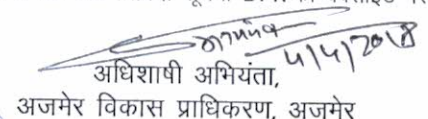 4/4/2018
अधिशाषी अभियंता,
अजमेर विकास प्राधिकरण, अजमेर